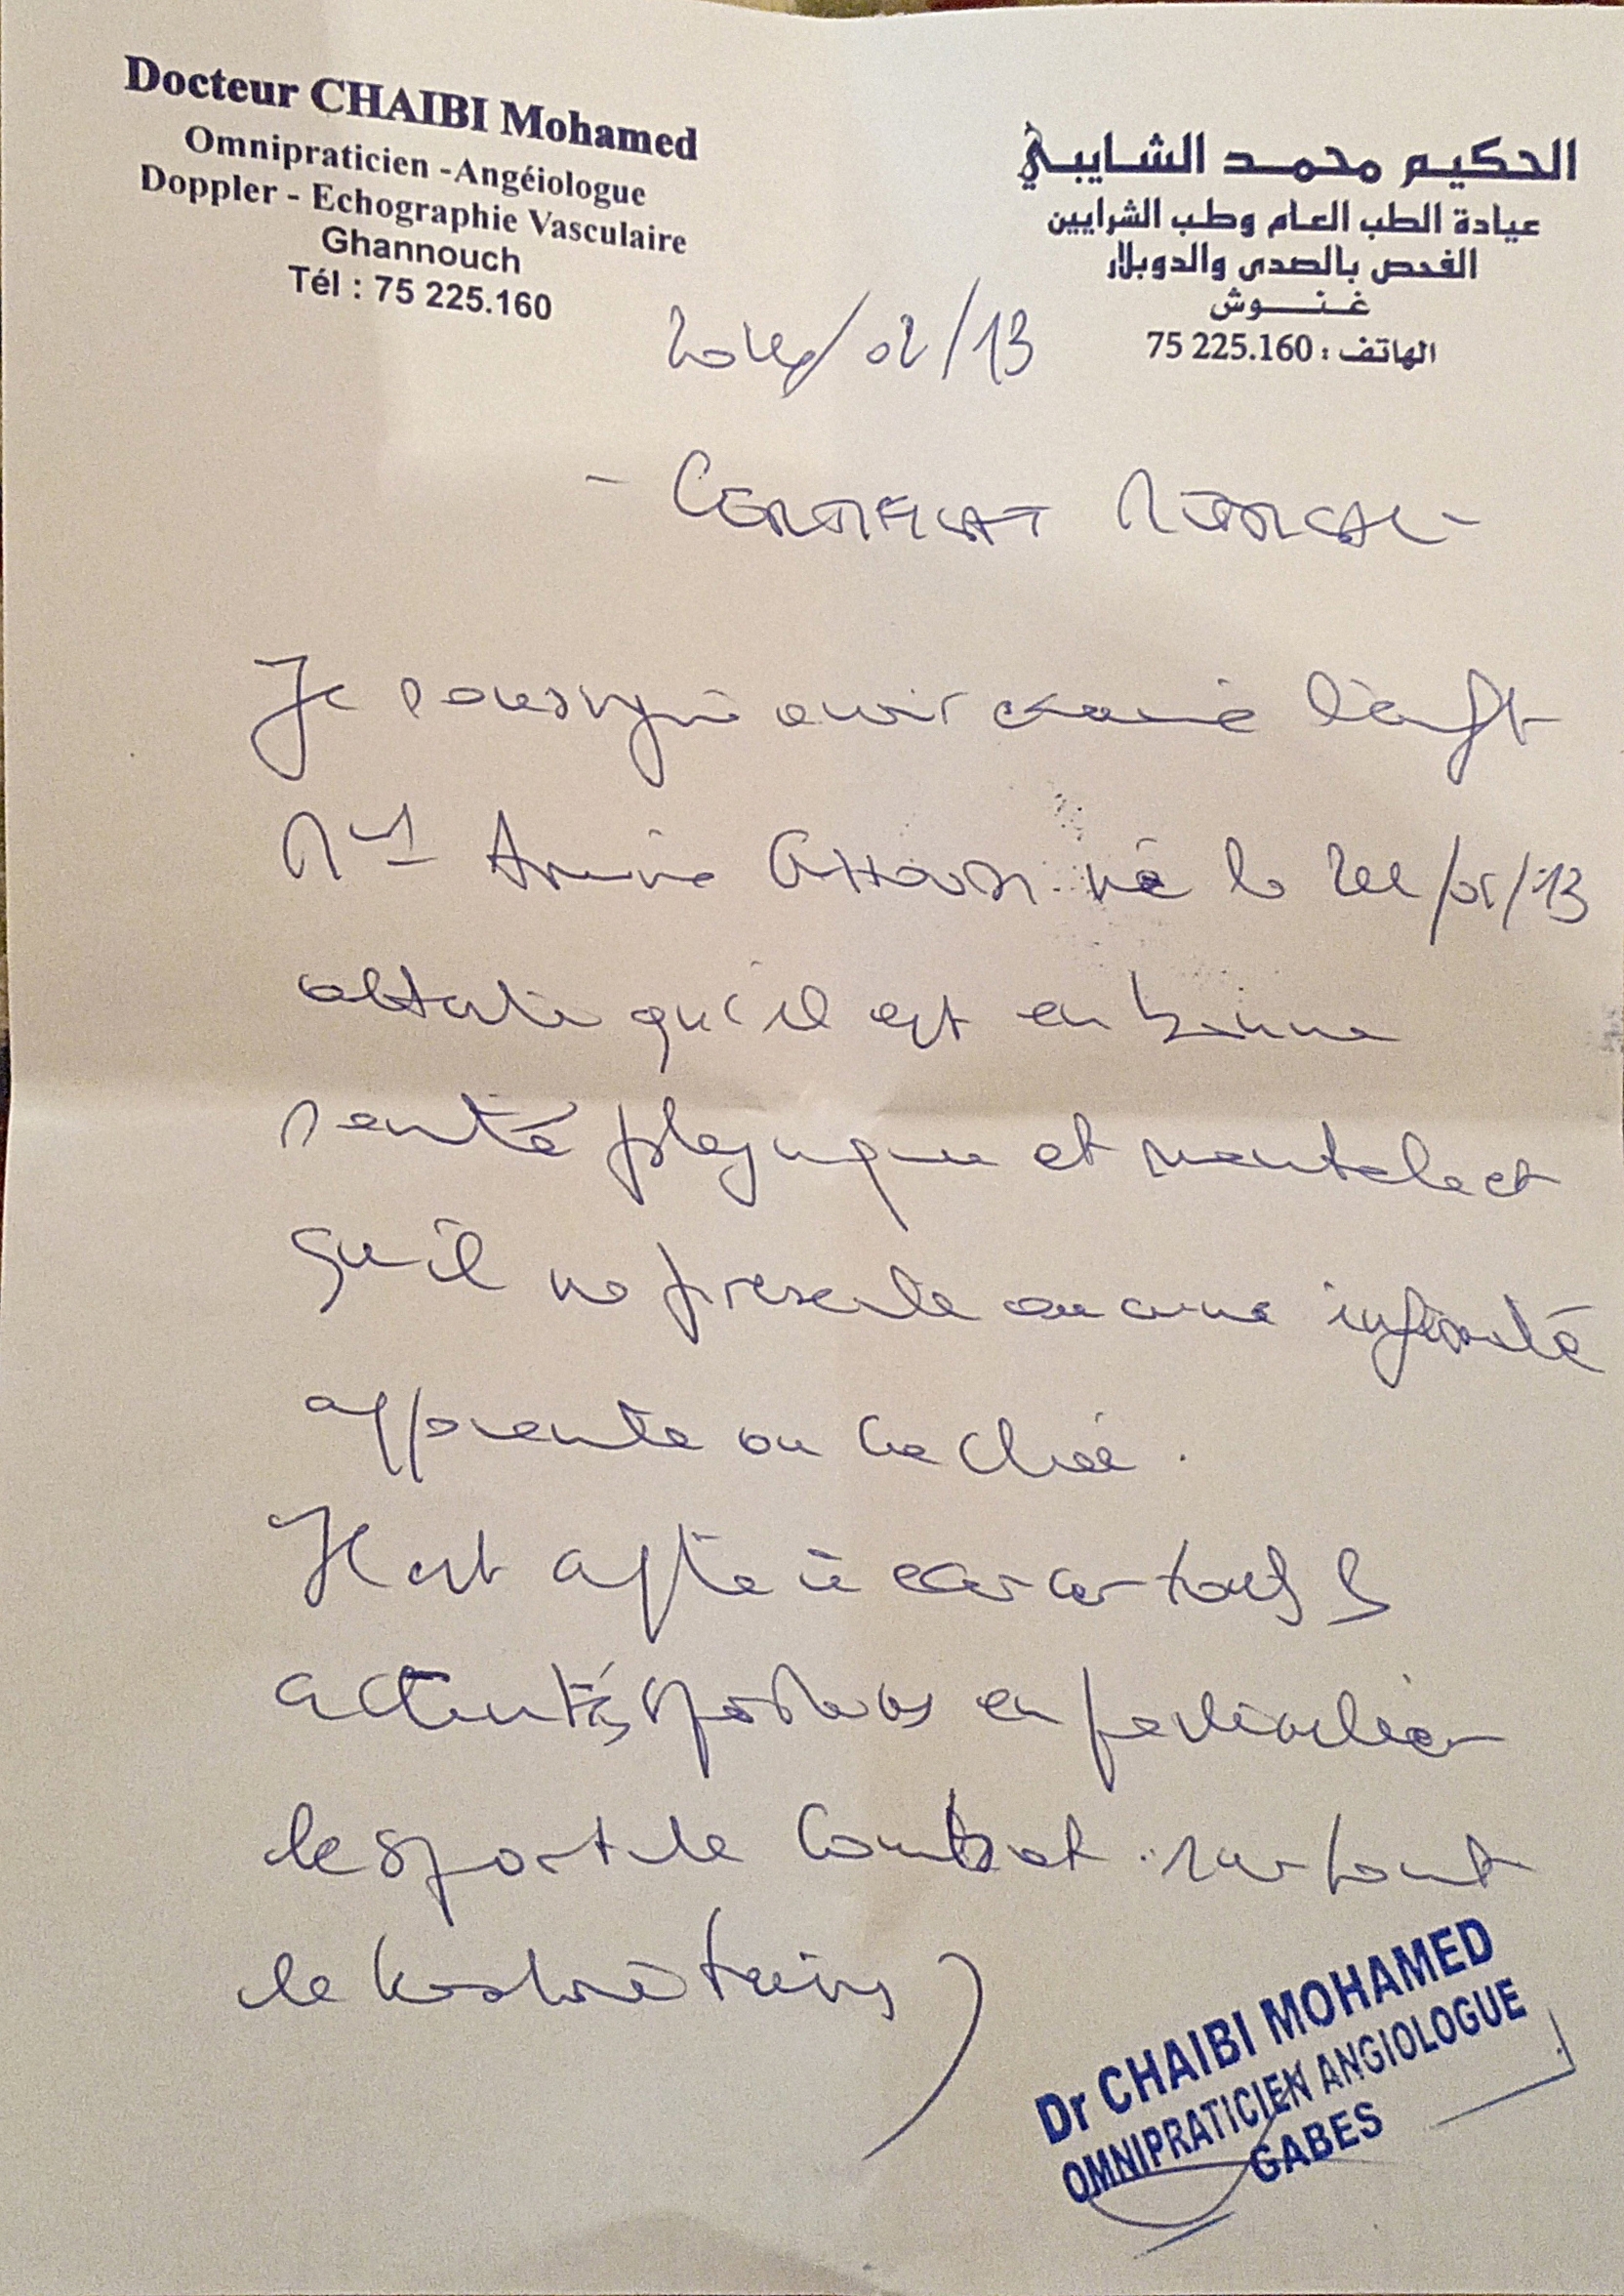 Docteur CHAIBI Mohamed
Omnipraticien - Angéiologue
Doppler - Echographie Vasculaire
Ghannouch
Tél : 75 225.160
الحكيم محمد الشايبي
عيادة الطب العام وطب الشرايين
الفحص بالصدى والدوبلار
غنوش
الهاتف : 75 225.160
/02/13
- CERTIFICAT MEDICAL -
Je soussigné avoir examiné l'enfant
né le /13
atteste qu'il est en bonne
santé physique et mentale et
qu'il ne présente aucune infirmité
apparente ou cachée.
Il est apte à exercer toutes les
activités sportives en particulier
le sport de combat surtout
le
Dr CHAIBI MOHAMED
OMNIPRATICIEN ANGIOLOGUE
GABES